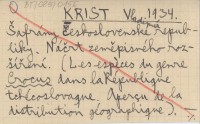 KRIST Vladimír 1934.
Šafrány Československé republiky.
liky. Náčrt zeměpisného roz-
šíření. (Les espèces du genre
Crocus dans la République
tchécoslovaque. Aperçu de la
distribution géographique).